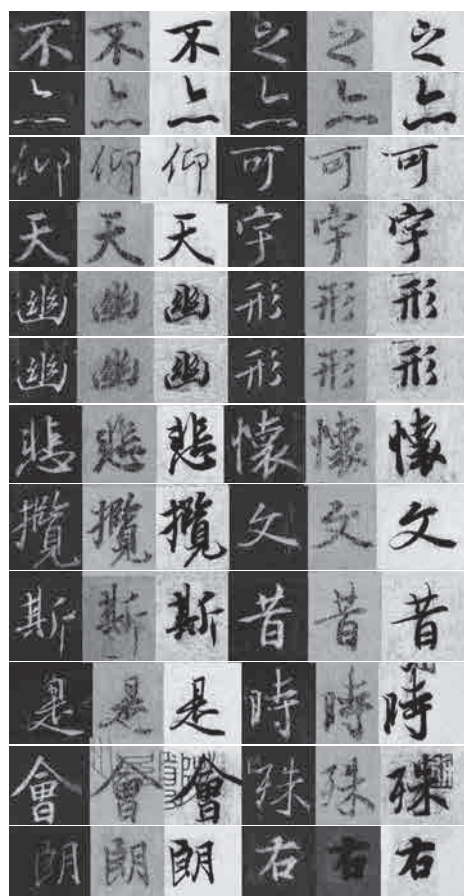 不不不之之之
亠亠亠亠亠亠
仰仰仰可可可
天天天宇宇宇
幽幽幽形形形
幽幽幽形形形
悲悲悲懷懷懷
攬攬攬文文文
斯斯斯昔昔昔
是是是時時時
會會會殊殊殊
朗朗朗右右右